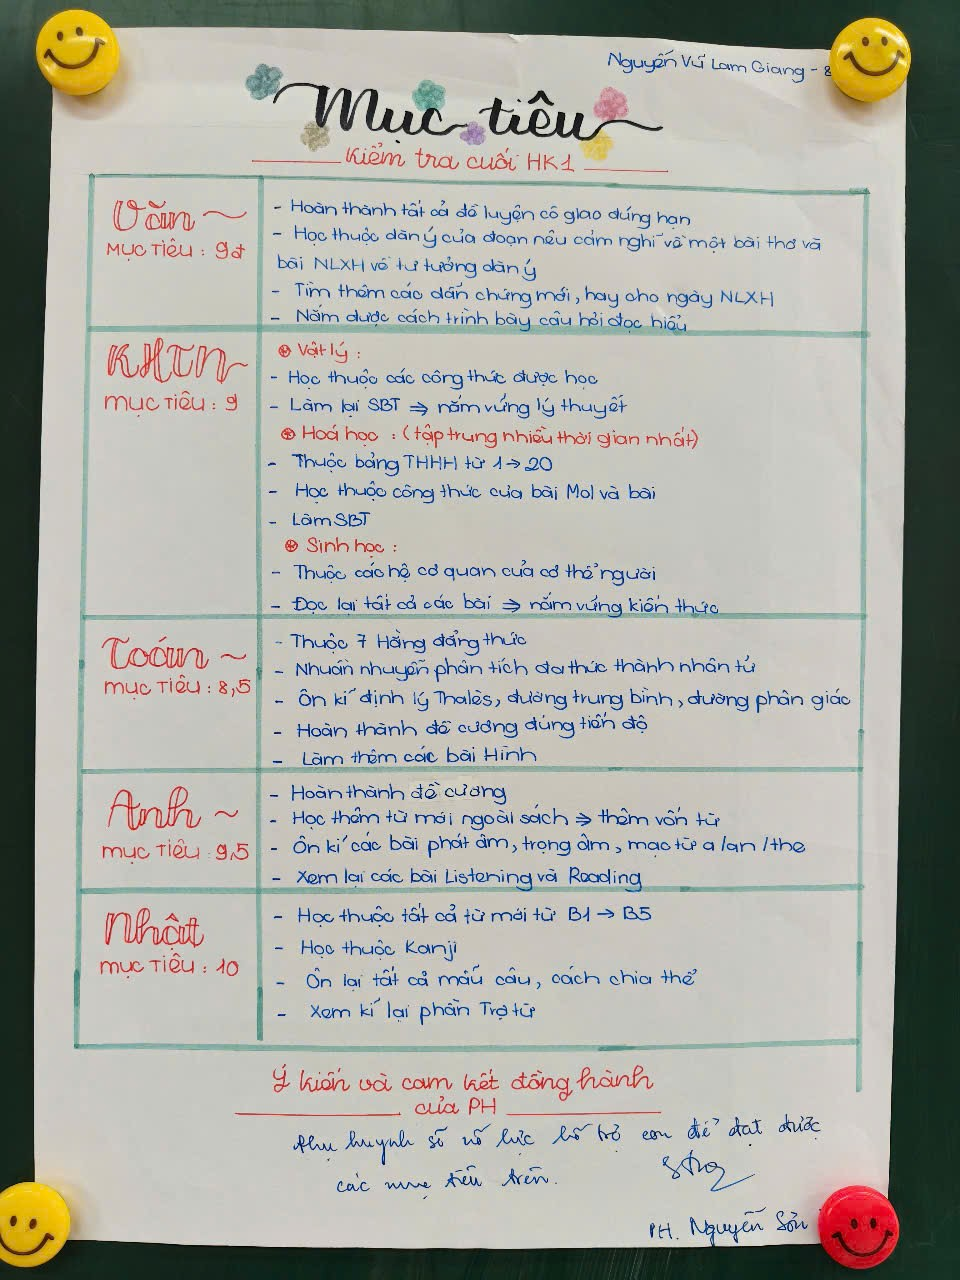 Nguyễn Vũ Lam Giang - 8
Mục tiêu
Kiểm tra cuối HK1
Văn ~
Mục tiêu : 9đ
- Hoàn thành tất cả đề luyện cô giao đúng hạn
- Học thuộc dàn ý của đoạn nêu cảm nghĩ về một bài thơ và
bài NLXH về tư tưởng dàn ý
- Tìm thêm các dẫn chứng mới, hay cho ngày NLXH
- Nắm được cách trình bày câu hỏi đọc hiểu
KHTN
mục tiêu : 9
Vật lý :
- Học thuộc các công thức được học
- Làm lại SBT ⇒ nắm vững lý thuyết
Hoá học : (tập trung nhiều thời gian nhất)
- Thuộc bảng THHH từ 1 → 20
- Học thuộc công thức của bài Mol và bài
- Làm SBT
Sinh học :
- Thuộc các hệ cơ quan của cơ thể người
- Đọc lại tất cả các bài ⇒ nắm vững kiến thức
Toán ~
mục tiêu : 8,5
- Thuộc 7 Hằng đẳng thức
- Nhuần nhuyễn phân tích đa thức thành nhân tử
- Ôn kĩ định lý Thalès, đường trung bình, đường phân giác
- Hoàn thành đề cương đúng tiến độ
- Làm thêm các bài Hình
Anh ~
mục tiêu : 9,5
- Hoàn thành đề cương
- Học thêm từ mới ngoài sách ⇒ thêm vốn từ
- Ôn kĩ các bài phát âm, trọng âm, mạo từ a/an/the
- Xem lại các bài Listening và Reading
Nhật
mục tiêu : 10
- Học thuộc tất cả từ mới từ B1 → B5
- Học thuộc Kanji
- Ôn lại tất cả mẫu câu, cách chia thể
- Xem kĩ lại phần Trợ từ
Ý kiến và cam kết đồng hành
của PH
Phụ huynh sẽ nỗ lực hỗ trợ con để đạt được
các mục tiêu trên.
PH. Nguyễn